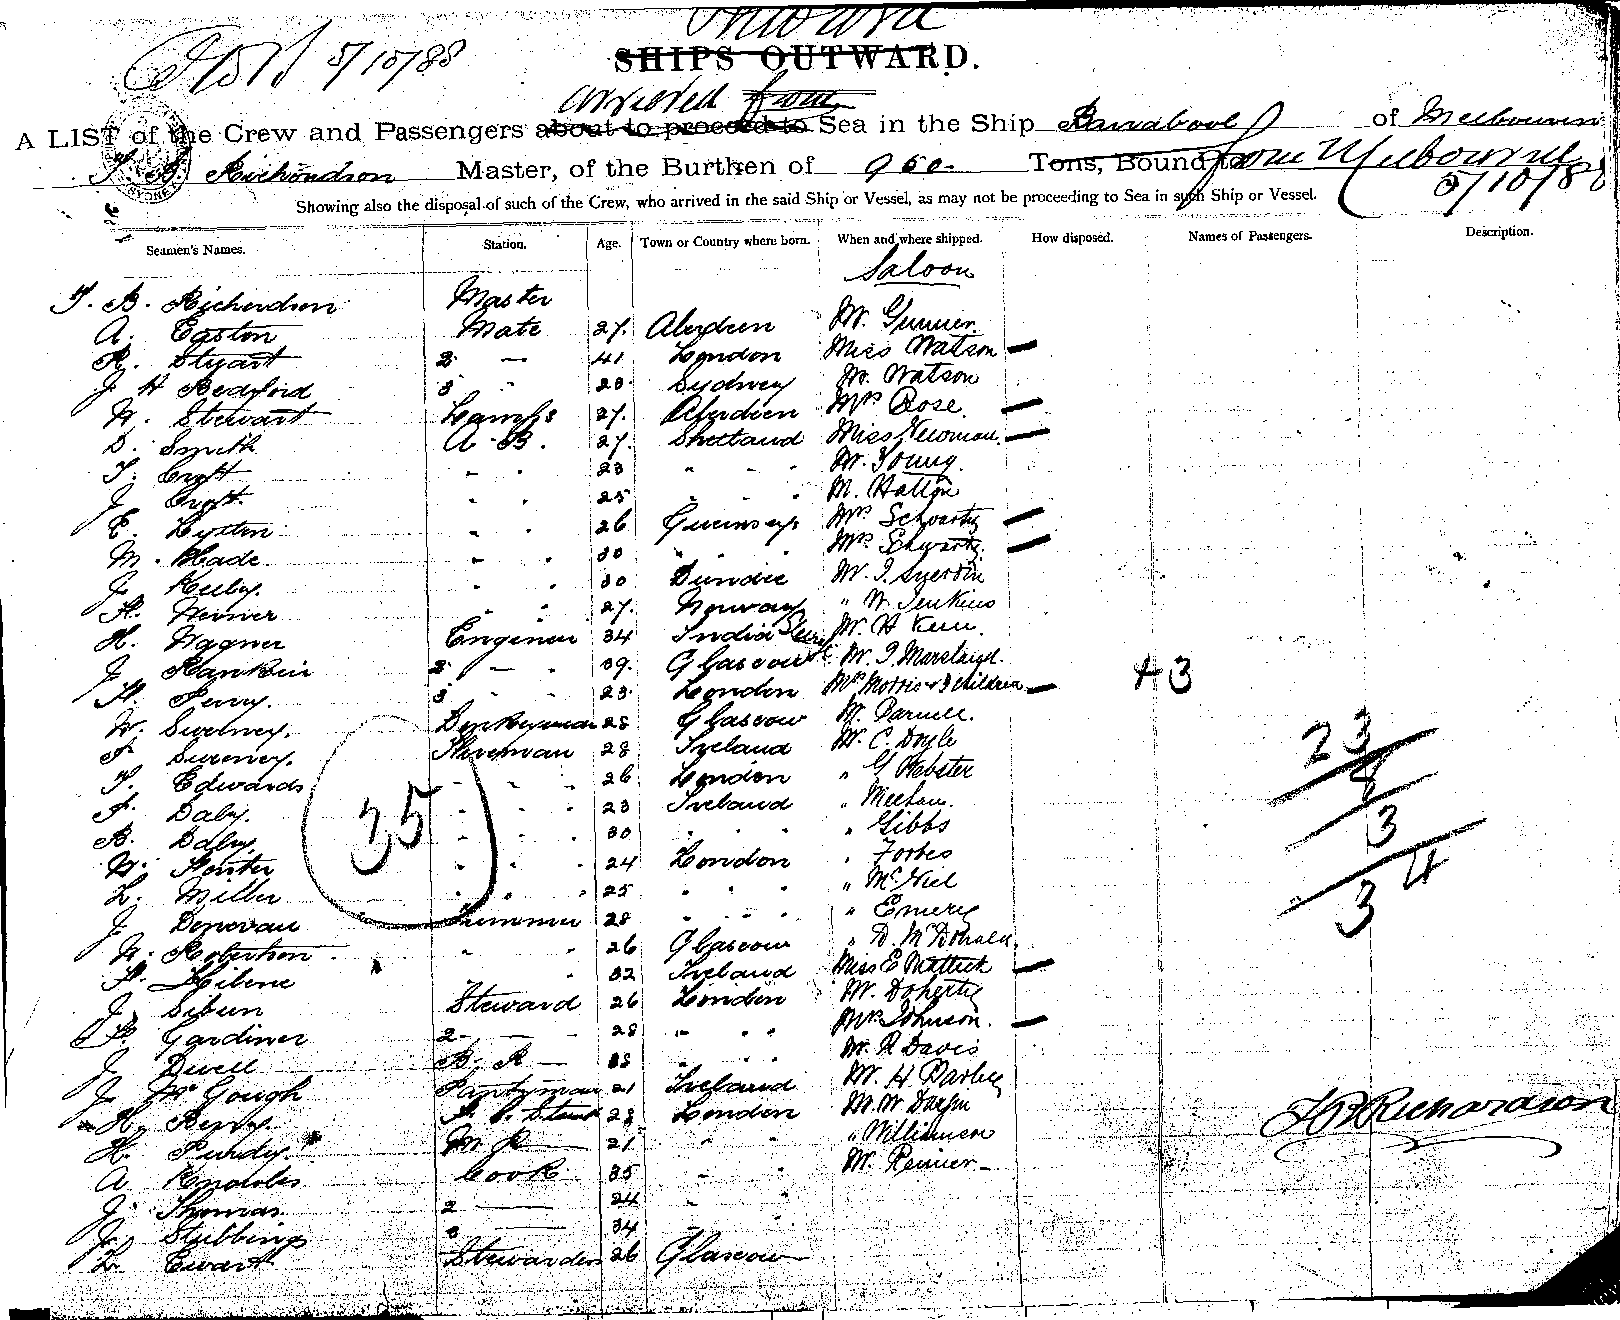 Inward
SHIPS OUTWARD.
5/10/88
arrived from
A LIST of the Crew and Passengers about to proceed to Sea in the Ship Barrabool of Melbourne
T. B. Richardson Master, of the Burthen of 950 Tons, Bound to from Melbourne
5/10/88
Showing also the disposal of such of the Crew, who arrived in the said Ship or Vessel, as may not be proceeding to Sea in such Ship or Vessel.
Seamen's Names. Station. Age. Town or Country where born. When and where shipped. How disposed. Names of Passengers. Description.
Saloon
T. B. Richardson Master
A. Easton Mate 27. Aberdeen Mr. Gunner.
R. Stuart 2 — 41 London Miss Watson
J H Bedford 3 " 23 Sydney Mr. Watson
W. Stewart Lamps 27. Aberdeen Mrs Rose.
D. Smith A. B. 27. Shetland Miss Newman.
T. Croft " " 23 " " " Mr. Young.
J. Croft. " " 25 " " M. Hatton
E. Lytton " " 26 Guernsey Mrs Schwartz
M. Wade. " " 30 " " Mrs Schwartz.
J. " " 30 Dundee Mr. J.
" " 27. Norway " W. Jenkins
H. Wagner Engineer 34 India Mr. H
J. Rankin 2 — " 39. Glascow Mr. J.
H. Perry. 3 " " 23. London Mrs Morris & 3 children + 3
W. Sweeney. Donkeyman 28 Glascow Mr. Parnell.
Sweeney. Fireman 28 Ireland Mr. C. Doyle
T. Edwards " " " 26 London " G Webster
Daly. " " " 23 Ireland " Meehan.
B. Daly. " " " 30 " " " " Gibbs
W. " " " 24 London " Forbes
L. Miller " " " 25 " " " " McNiel
J. Donovan Trimmer 28 " " " " Emery
W. Robertson " " 26 Glascow " D. McDonald.
" 32 Ireland Miss E
J. Steward 26 London Mr. Doherty
Gardiner 2 — 28 " " " Mrs Johnson.
J. B. R — 38 " " Mr. R Davis
J. McGough Pantryman 21 Ireland Mr. H
H. Berry. 28 London Mr. W
H. M R 21 " " " Williamson
A Cook 35 " " Mr.
J. Thomas. 2 — 24 " "
J. Stubbings 3 — 34
L. Ewart Stewardess 26 Glascow
35
23
8
3
34
T B Richardson